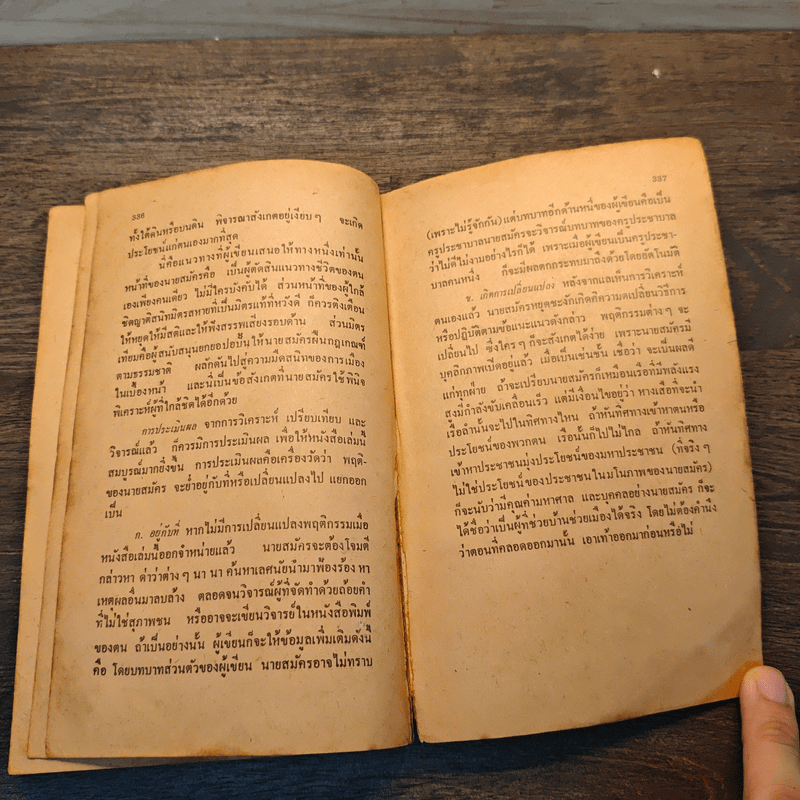 336
ทั้งใต้ดินหรือบนดิน พิจารณาสังเกตอยู่เงียบๆ จะเกิด
ประโยชน์แก่ตนเองมากที่สุด
นี่คือแนวทางที่ผู้เขียนเสนอให้ทางหนึ่งเท่านั้น
หน้าที่ของนายสมัครคือ เป็นผู้ตัดสินแนวทางชีวิตของตน
เองเพียงคนเดียว ไม่มีใครบังคับได้ ส่วนหน้าที่ของผู้ใกล้
ชิดญาติสนิทมิตรสหายที่เป็นมิตรแท้ที่หวังดี ก็ควรติงเตือน
ให้หยุดให้มีสติและให้ฟังสรรพเสียงรอบด้าน ส่วนมิตร
เทียมคือผู้สนับสนุนยกยอปอปั้น ให้นายสมัครฝืนกฎเกณฑ์
ตามธรรมชาติ ผลักดันไปสู่ความมืดสนิทของการเมือง
ในเบื้องหน้า และนี่เป็นข้อสังเกตที่นายสมัครใช้พินิจ
พิเคราะห์ผู้ที่ใกล้ชิดได้อีกด้วย
การประเมินผล จากการวิเคราะห์ เปรียบเทียบ และ
วิจารณ์แล้ว ก็ควรมีการประเมินผล เพื่อให้หนังสือเล่มนี้
สมบูรณ์มากยิ่งขึ้น การประเมินผลคือเครื่องวัดว่า พฤติ-
ของนายสมัคร จะย่ำอยู่กับที่หรือเปลี่ยนแปลงไป แยกออก
เป็น
ก. อยู่กับที่ หากไม่มีการเปลี่ยนแปลงพฤติกรรมเมื่อ
หนังสือเล่มนี้ออกจำหน่ายแล้ว นายสมัครจะต้องโจมตี
กล่าวหา ด่าว่าต่างๆ นา นา ค้นหาเลศนัยนำมาฟ้องร้อง หา
เหตุผลอื่นมาลบล้าง ตลอดจนวิจารณ์ผู้ที่จัดทำด้วยถ้อยคำ
ที่ไม่ใช่สุภาพชน หรืออาจจะเขียนวิจารย์ในหนังสือพิมพ์
ของตน ถ้าเป็นอย่างนั้น ผู้เขียนก็จะให้ข้อมูลเพิ่มเติมดังนี้
คือ โดยบทบาทส่วนตัวของผู้เขียน นายสมัครอาจไม่ทราบ
337
(เพราะไม่รู้จักกัน) แต่บทบาทอีกด้านหนึ่งของผู้เขียนคือเป็น
ครูประชาบาลนายสมัครจะวิจารณ์บทบาทของครูประชาบาล
ว่าไม่ดีไม่งามอย่างไรก็ได้ เพราะเมื่อผู้เขียนเป็นครูประชา-
บาลคนหนึ่ง ก็จะมีผลตกกระทบมาถึงด้วยโดยอัตโนมัติ
ข. เกิดการเปลี่ยนแปลง หลังจากแลเห็นการวิเคราะห์
ตนเองแล้ว นายสมัครหยุดชะงักเกิดคิดความดเปลี่ยนวิธีการ
หรือปฏิบัติตามข้อแนะแนวดังกล่าว พฤติการต่างๆ จะ
เปลี่ยนไป ซึ่งใครๆ ก็จะสังเกตได้ง่าย เพราะนายสมัครมี
บุคลิกภาพเปิดอยู่แล้ว เมื่อเป็นเช่นนั้น เชื่อว่า จะเป็นผลดี
แก่ทุกฝ่าย ถ้าจะเปรียบนายสมัครก็เหมือนเรือที่มีพลังแรง
สูงมีกำลังขับเคลื่อนเร็ว แต่มีเงื่อนไขอยู่ว่า หางเสือที่จะนำ
เรือลำนั้นจะไปในทิศทางไหน ถ้าหันทิศทางเข้าหาตนหรือ
ประโยชน์ของพวกตน เรือนั้นก็ไปไม่ไกล ถ้าหันทิศทาง
เข้าหาประชาชนมุ่งประโยชน์ของมหาประชาชน (ที่จริงๆ
ไม่ใช่ประโยชน์ของประชาชนในมโนภาพของนายสมัคร)
ก็จะนับว่ามีคุณค่ามหาศาล และบุคคลอย่างนายสมัคร ก็จะ
ได้ชื่อว่าเป็นผู้ที่ช่วยบ้านช่วยเมืองได้จริง โดยไม่ต้องคำนึง
ว่าตอนที่คลอดออกมานั้น เอาเท้าออกมาก่อนหรือไม่